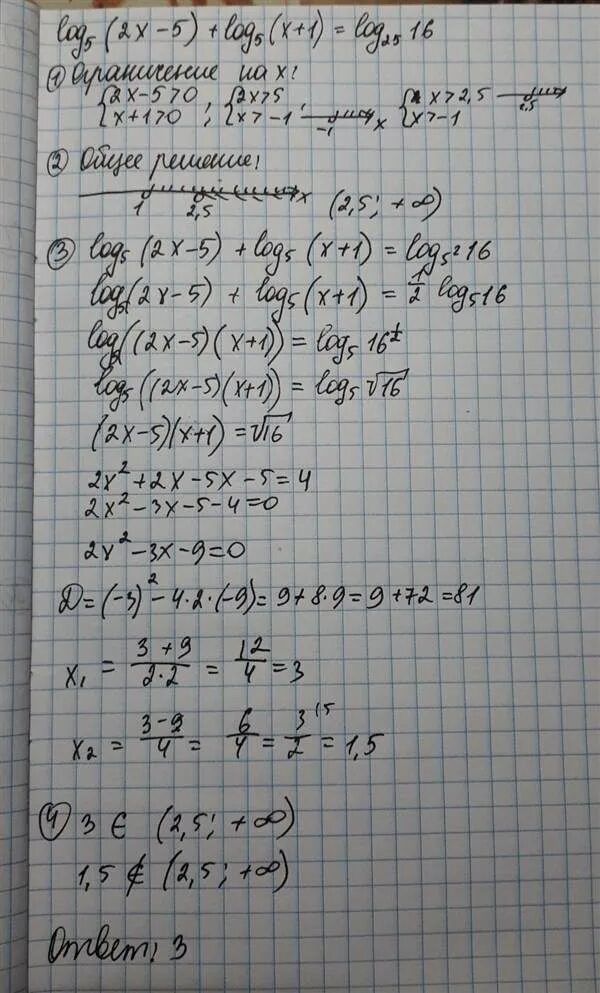 log₅(2x-5)+log₅(x+1)=log₂₅16
① Ограничение на x:
{2x-5>0, {2x>5, {x>2,5
{x+1>0; {x>-1 {x>-1
-1 x 2,5
② Общее решение:
1 2,5 x (2,5; +∞)
③ log₅(2x-5)+log₅(x+1)=log₅²16
log₅(2x-5)+log₅(x+1)=1/2 log₅16
log₅((2x-5)(x+1))=log₅16^½
log₅((2x-5)(x+1))=log₅√16
(2x-5)(x+1)=√16
2x²+2x-5x-5=4
2x²-3x-5-4=0
2x²-3x-9=0
D=(-3)²-4·2·(-9)=9+8·9=9+72=81
x₁=(3+9)/(2·2)=12/4=3
x₂=(3-9)/4=6/4=3/2=1,5
④ 3∈(2,5; +∞)
1,5∉(2,5; +∞)
Ответ: 3